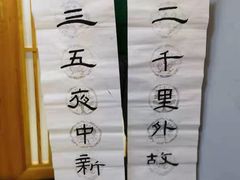 三五夜中新
二千里外故